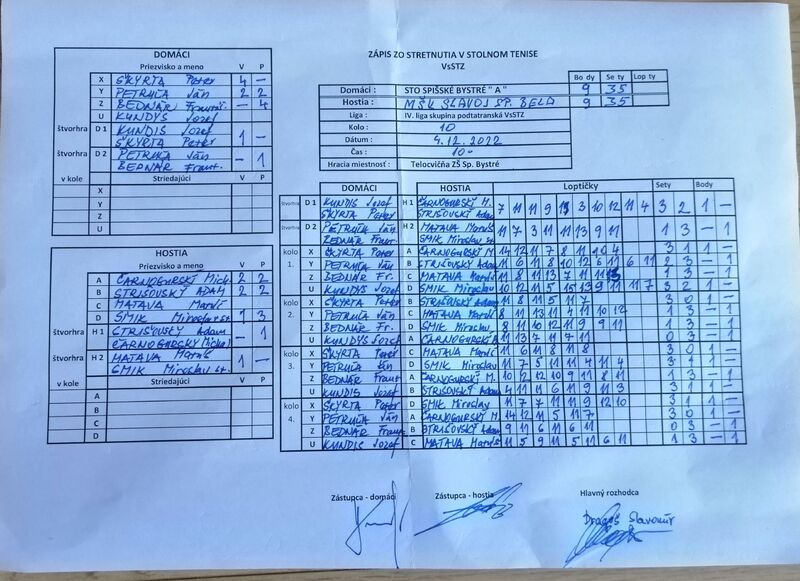 DOMÁCI
Priezvisko a meno V P
X ŠKYRTA Peter 4 —
Y PETRUĽA Ján 2 2
Z BEDNÁR — 4
U KUNDYS Jozef
štvorhra D 1 KUNDIS Jozef 1 —
ŠKYRTA Peter
štvorhra D 2 PETRUĽA Ján — 1
BEDNÁR Frant.
v kole Striedajúci
X
Y
Z
U
HOSTIA
Priezvisko a meno V P
A ČARNOGURSKÝ Mich. 2 2
B STRIŠOVSKÝ ADAM 2 2
C MATAVA Maroš
D SMIK Miroslav st. 1 3
štvorhra H 1 STRIŠOVSKÝ Adam — 1
ČARNOGURSKÝ Michal
štvorhra H 2 MATAVA Maroš 1 —
SMIK Miroslav st.
v kole Striedajúci
A
B
C
D
ZÁPIS ZO STRETNUTIA V STOLNOM TENISE
VsSTZ
Bo dy Se ty Lop ty
Domáci : STO SPIŠSKÉ BYSTRÉ " A " 9 35
Hostia : MŠK SLAVOJ SP. BELA 9 35
Liga : IV. liga skupina podtatranská VsSTZ
Kolo : 10
Dátum : 4.12.2022
Čas : 10-
Hracia miestnosť : Telocvičňa ZŠ Sp. Bystré
DOMÁCI HOSTIA Loptičky Sety Body
štvorhra D 1 KUNDIS Jozef H 1 ČARNOGURSKÝ M. 7 11 11 9 13 3 10 12 11 4 3 2 1 —
ŠKYRTA Peter STRIŠOVSKÝ Adam
štvorhra D 2 PETRUĽA Ján H 2 MATAVA Maroš 11 7 3 11 11 13 9 11 1 3 — 1
BEDNÁR Frant. SMIK Miroslav st.
kolo 1.
X ŠKYRTA Peter A ČARNOGURSKÝ M. 14 12 11 7 8 11 10 4 3 1 1 —
Y PETRUĽA Ján B STRIŠOVSKÝ Adam 11 6 11 8 10 12 6 11 6 11 2 3 — 1
Z BEDNÁR Fr. C MATAVA Maroš 11 8 11 13 7 11 11 1 3 — 1
U KUNDIS Jozef D SMIK Miroslav 10 12 11 5 15 13 9 11 11 7 3 2 1 —
kolo 2.
X ŠKYRTA Peter B STRIŠOVSKÝ Adam 11 8 11 5 11 7 3 0 1 —
Y PETRUĽA Ján C MATAVA Maroš 8 11 11 13 11 4 11 10 12
Z BEDNÁR Fr. D SMIK Miroslav 8 11 10 12 11 9 9 11
U KUNDYS Jozef A ČARNOGURSKÝ 11 13 7 11 7 11
kolo 3.
X ŠKYRTA Peter C MATAVA Maroš 11 6 11 8 11 8 3 0 1 —
Y PETRUĽA Ján D SMIK Miroslav 11 7 5 11 11 4 11 4 3 1 1 —
Z BEDNÁR Frant A ČARNOGURSKÝ M. 10 12 12 10 9 11 8 11 1 3 — 1
U KUNDIS Jozef B STRIŠOVSKÝ Adam 4 11 11 6 11 9 11 3 3 1 1 —
kolo 4.
X ŠKYRTA Peter D SMIK Miroslav 11 7 7 11 11 9 12 10 3 1 1 —
Y PETRUĽA Ján A ČARNOGURSKÝ M. 14 12 11 5 11 7 3 0 1 —
Z BEDNÁR Fran. B STRIŠOVSKÝ Adam 9 11 6 11 6 11 0 3 — 1
U KUNDIS Jozef C MATAVA Maroš 11 5 9 11 5 11 6 11 1 3 — 1
Zástupca - domáci Zástupca - hostia Hlavný rozhodca
Slavomír